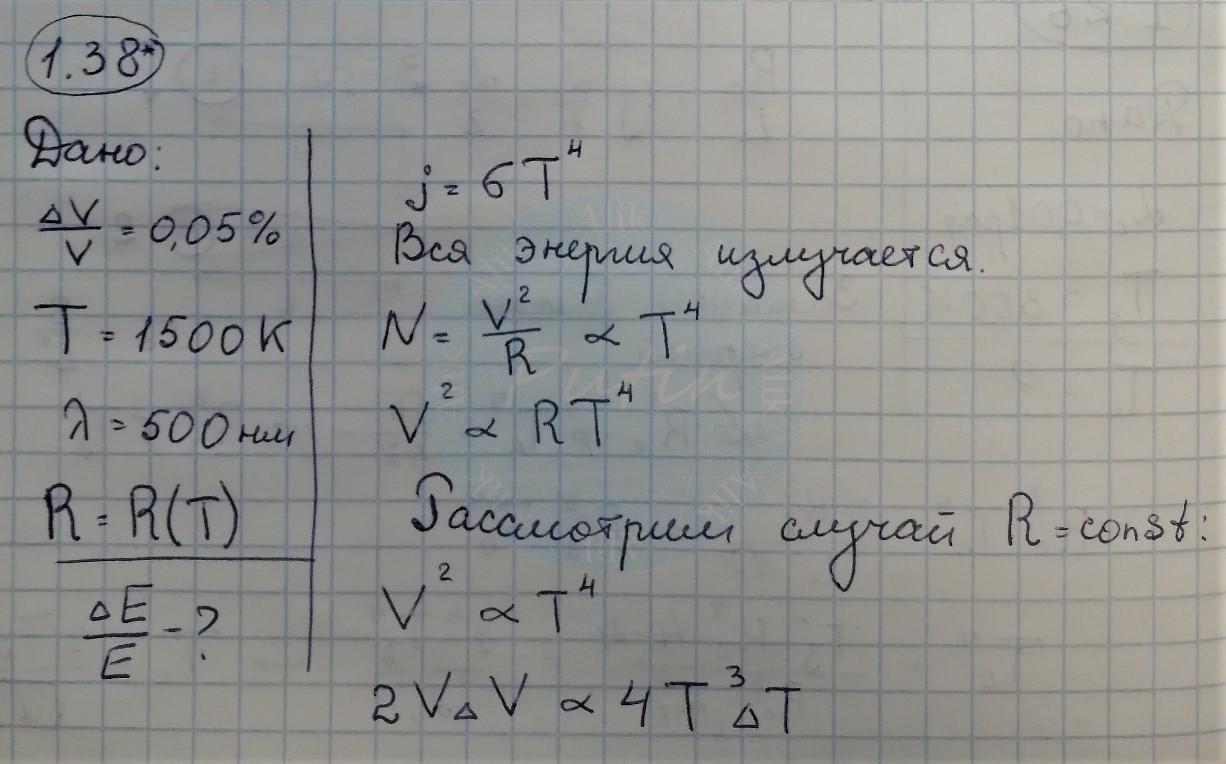 1.38*
Дано:
ΔV/V = 0,05%
T = 1500 К
λ = 500 нм
R = R(T)
ΔE/E - ?
j = σT⁴
Вся энергия излучается.
N = V²/R ∝ T⁴
V² ∝ RT⁴
Рассмотрим случай R = const:
V² ∝ T⁴
2VΔV ∝ 4T³ΔT
Alik
Putin